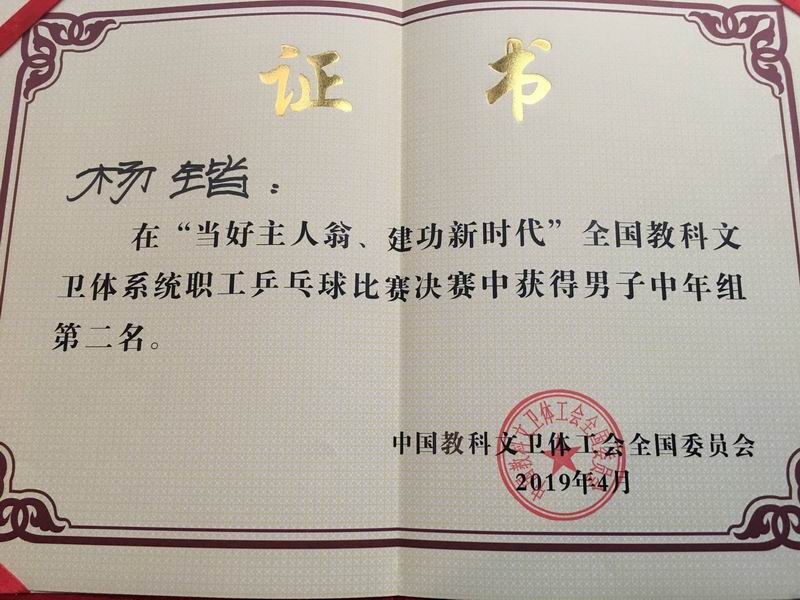 证 书
杨锴：
在“当好主人翁、建功新时代”全国教科文
卫体系统职工乒乓球比赛决赛中获得男子中年组
第二名。
中国教科文卫体工会全国委员会
2019年4月
中国教科文卫体工会全国委员会